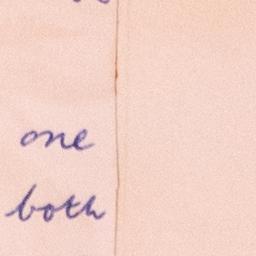 one
both